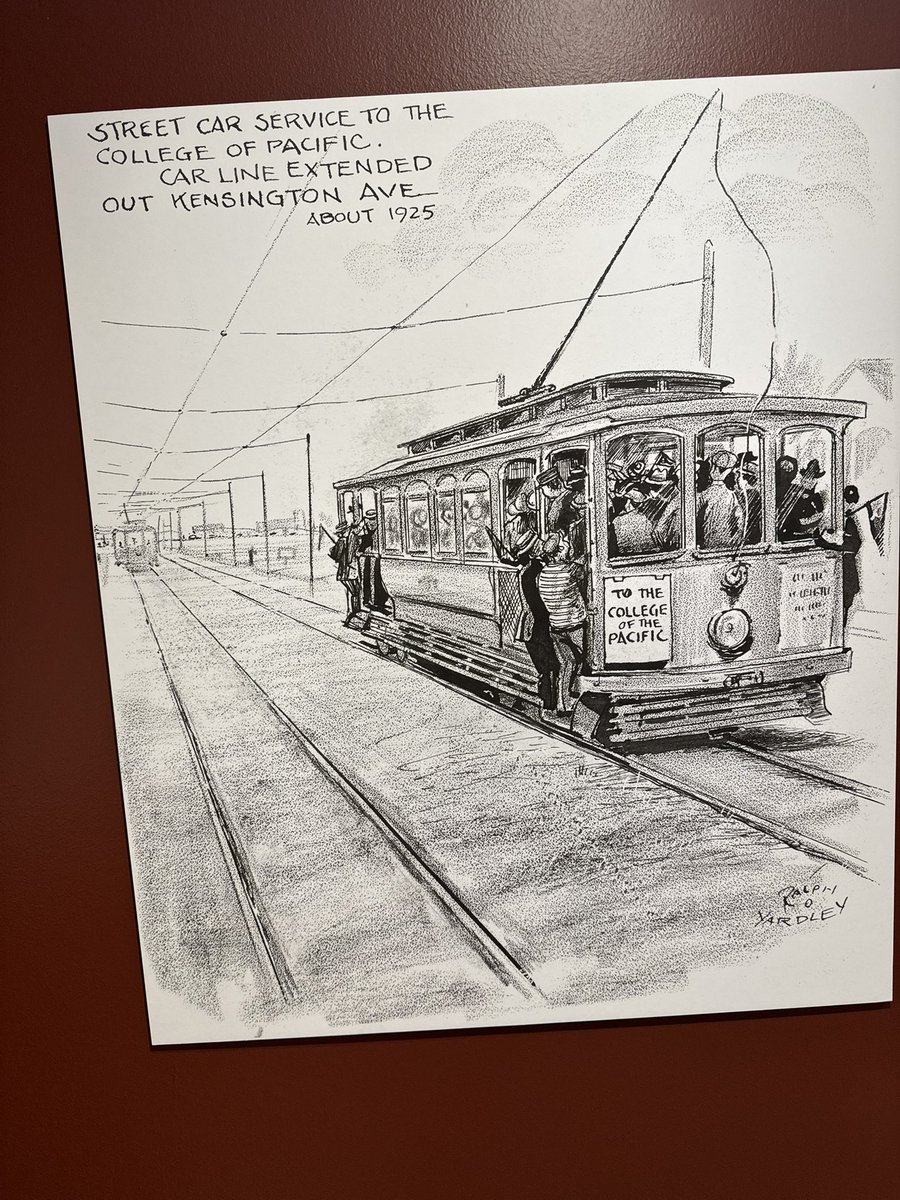 STREET CAR SERVICE TO THE
COLLEGE OF PACIFIC.
CAR LINE EXTENDED
OUT KENSINGTON AVE
ABOUT 1925
TO THE
COLLEGE
OF THE
PACIFIC
RALPH
O.
YARDLEY